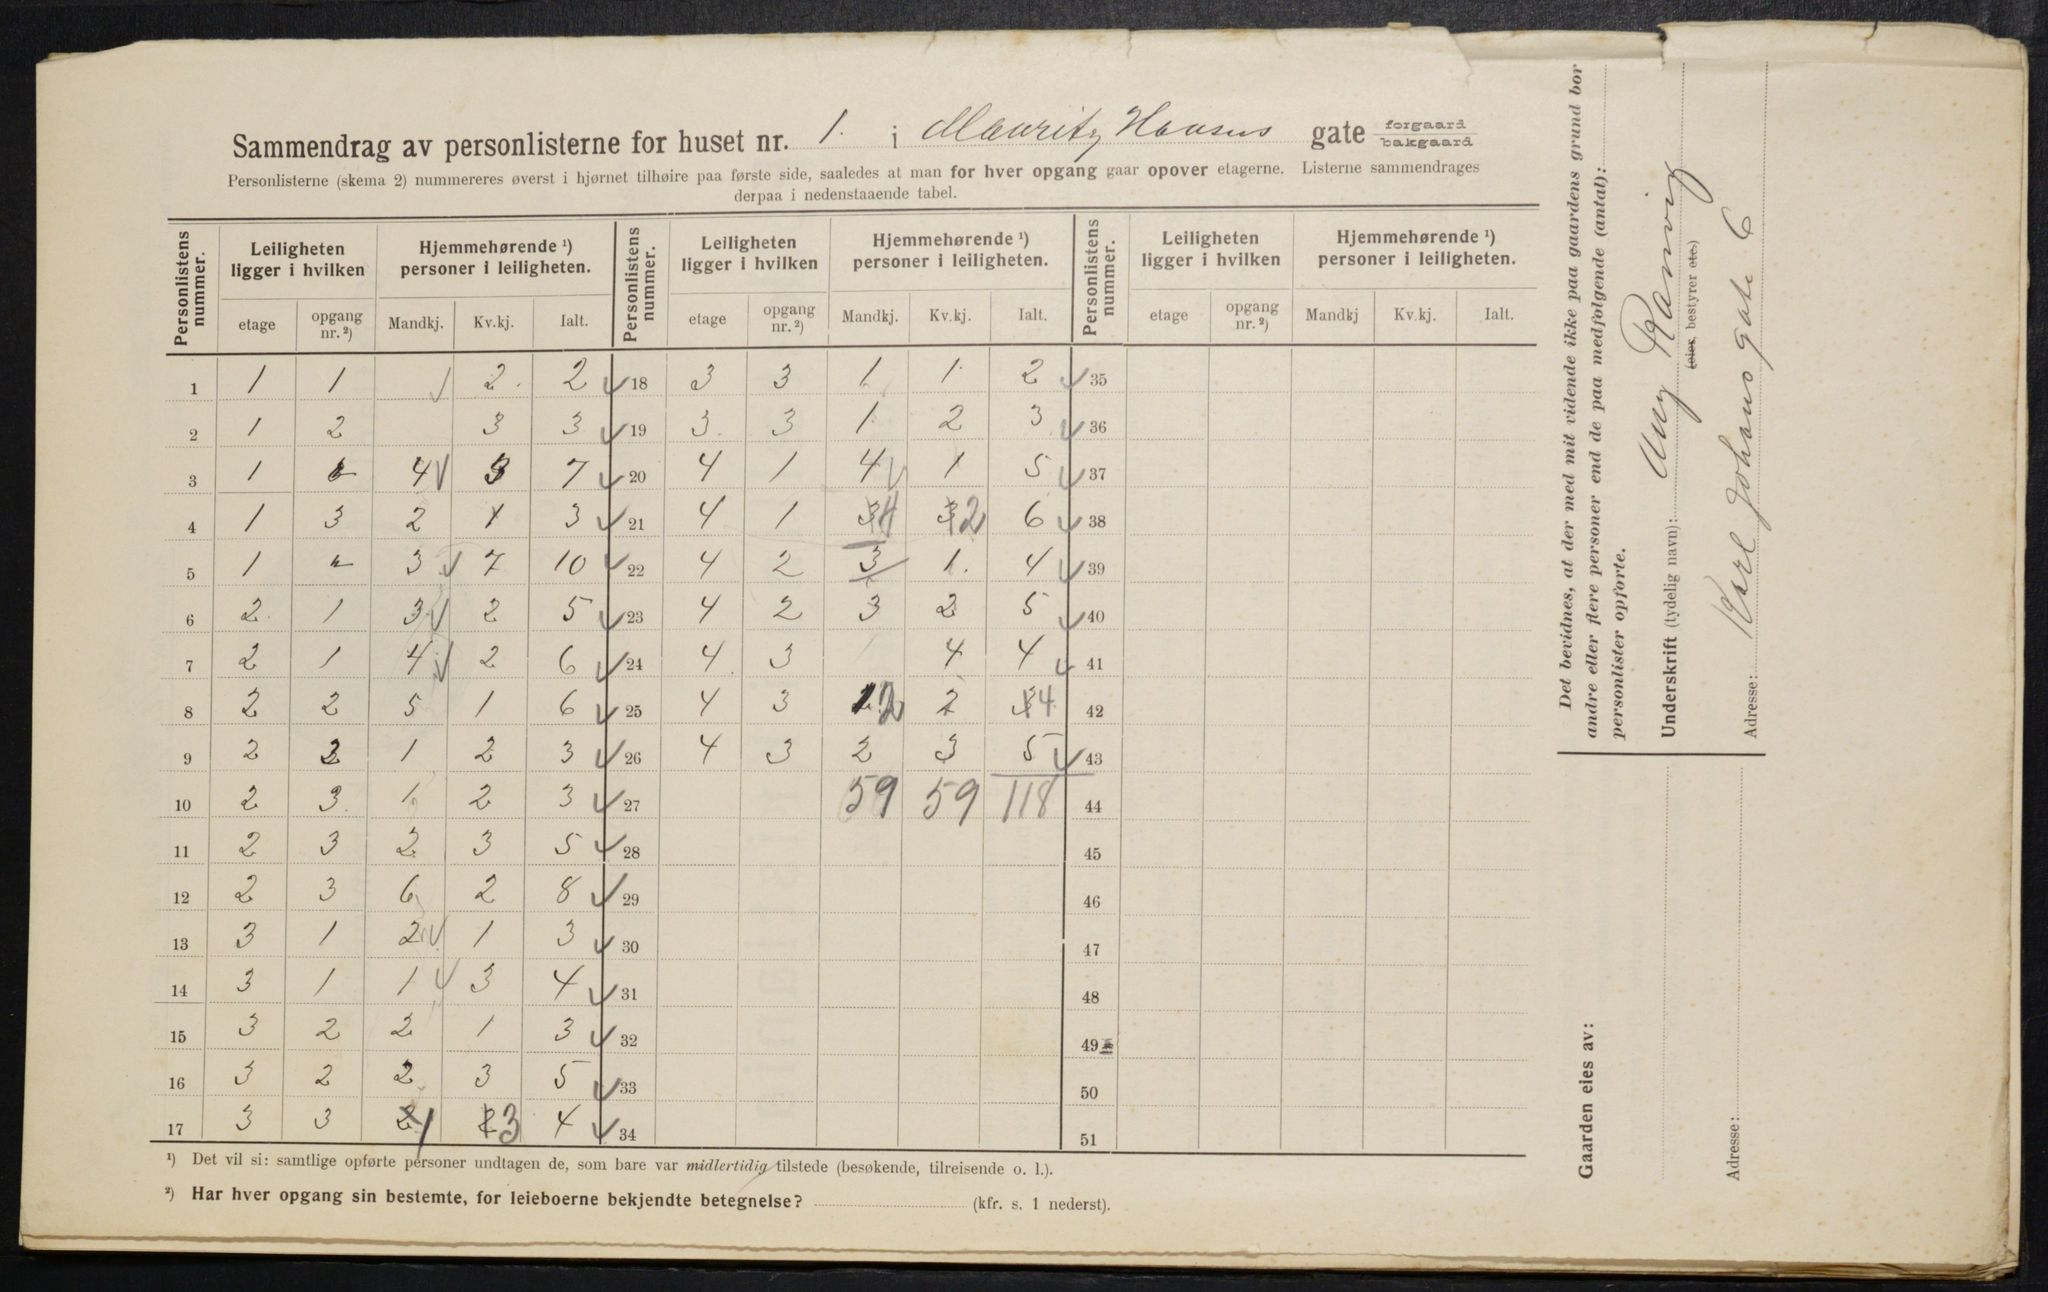 Sammendrag av personlisterne for huset nr. 1. i Mauritz Hansens gate forgaard bakgaard
Personlisterne (skema 2) nummereres øverst i hjørnet tilhøire paa første side, saaledes at man for hver opgang gaar opover etagerne. Listerne sammendrages
derpaa i nedenstaaende tabel.
Personlistens nummer. Leiligheten ligger i hvilken Hjemmehørende ¹) personer i leiligheten. Personlistens nummer. Leiligheten ligger i hvilken Hjemmehørende ¹) personer i leiligheten. Personlistens nummer. Leiligheten ligger i hvilken Hjemmehørende ¹) personer i leiligheten.
etage opgang nr. ²) Mandkj. Kv.kj. Ialt. etage opgang nr. ²) Mandkj. Kv.kj. Ialt. etage opgang nr. ²) Mandkj Kv.kj. Ialt.
1 1 1 2 2 18 3 3 1 1 2 35
2 1 2 3 3 19 3 3 1 2 3 36
3 1 4 3 7 20 4 1 4 1 5 37
4 1 3 2 1 3 21 4 1 3 4 3 2 6 38
5 1 3 7 10 22 4 2 3 1 4 39
6 2 1 3 2 5 23 4 2 3 2 5 40
7 2 1 4 2 6 24 4 3 4 4 41
8 2 2 5 1 6 25 4 3 2 2 4 42
9 2 2 1 2 3 26 4 3 2 3 5 43
10 2 3 1 2 3 27 59 59 118 44
11 2 3 2 3 5 28 45
12 2 3 6 2 8 29 46
13 3 1 2 1 3 30 47
14 3 1 1 3 4 31 48
15 3 2 2 1 3 32 49
16 3 2 2 3 5 33 50
17 3 3 2 1 2 3 4 34 51
¹) Det vil si: samtlige opførte personer undtagen de, som bare var midlertidig tilstede (besøkende, tilreisende o. l.).
²) Har hver opgang sin bestemte, for leieboerne bekjendte betegnelse? (kfr. s. 1 nederst).
Det bevidnes, at der med mit vidende ikke paa gaardens grund bor
andre eller flere personer end de paa medfølgende (antal):
personlister opførte.
Underskrift (tydelig navn): Aug Ranvig
(eier, bestyrer etc)
Adresse: Karl Johans gate 6
Gaarden eies av:
Adresse: